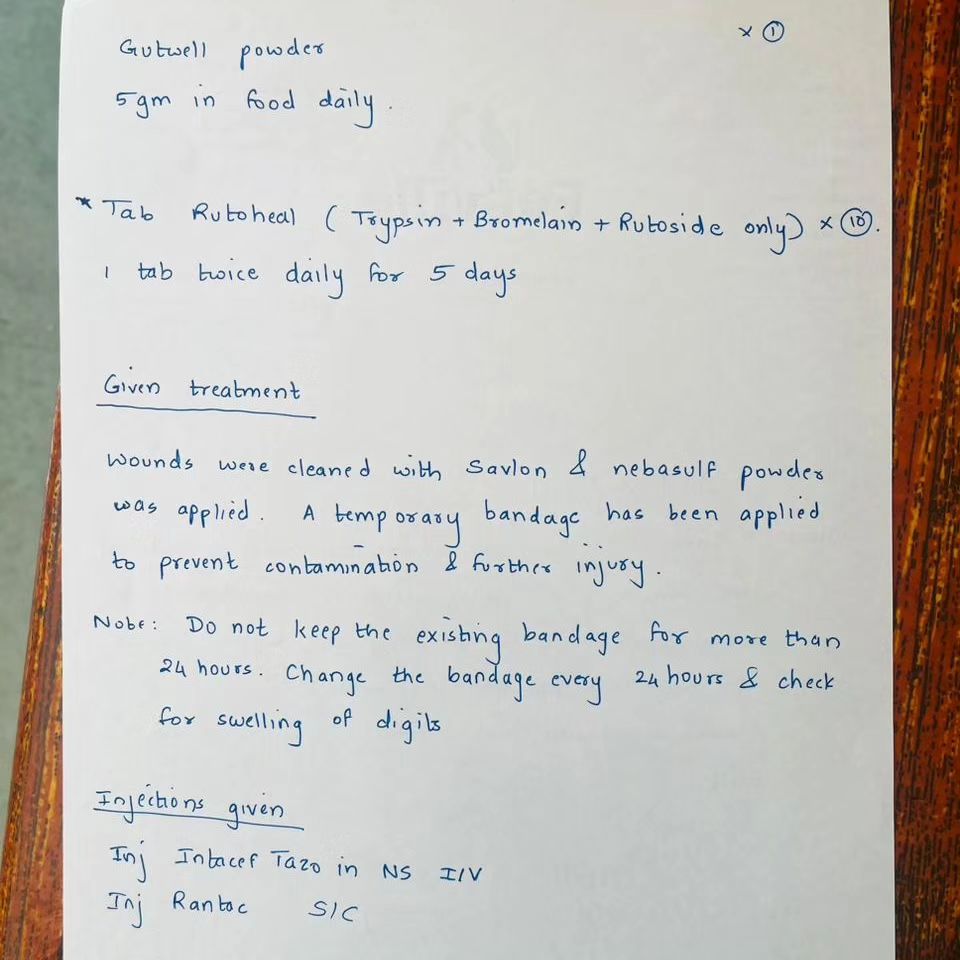 Gutwell powder × ①
5gm in food daily.
* Tab Rutoheal (Trypsin + Bromelain + Rutoside only) × ⑩.
1 tab twice daily for 5 days
Given treatment
Wounds were cleaned with Savlon & nebasulf powder
was applied. A temporary bandage has been applied
to prevent contamination & further injury.
Note: Do not keep the existing bandage for more than
24 hours. Change the bandage every 24 hours & check
for swelling of digits
Injections given
Inj Intacef Tazo in NS I/V
Inj Rantac S/C